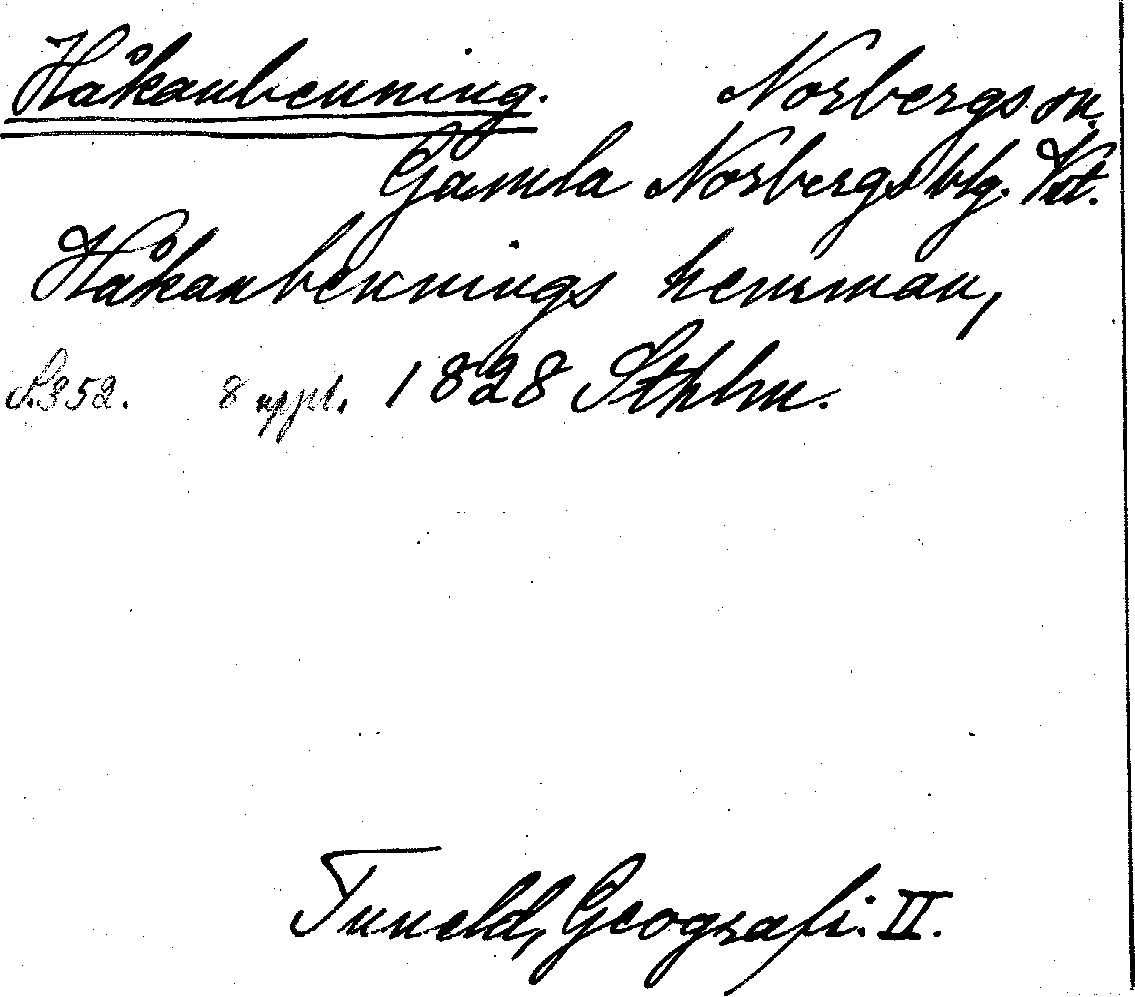 Håkanbenning. Norbergs sn.
Gamla Norbergs blg. Vstm.
Håkanbennings hemman,
S.352. 8 uppl. 1828 Sthlm.
Tuneld, Geografi. II.